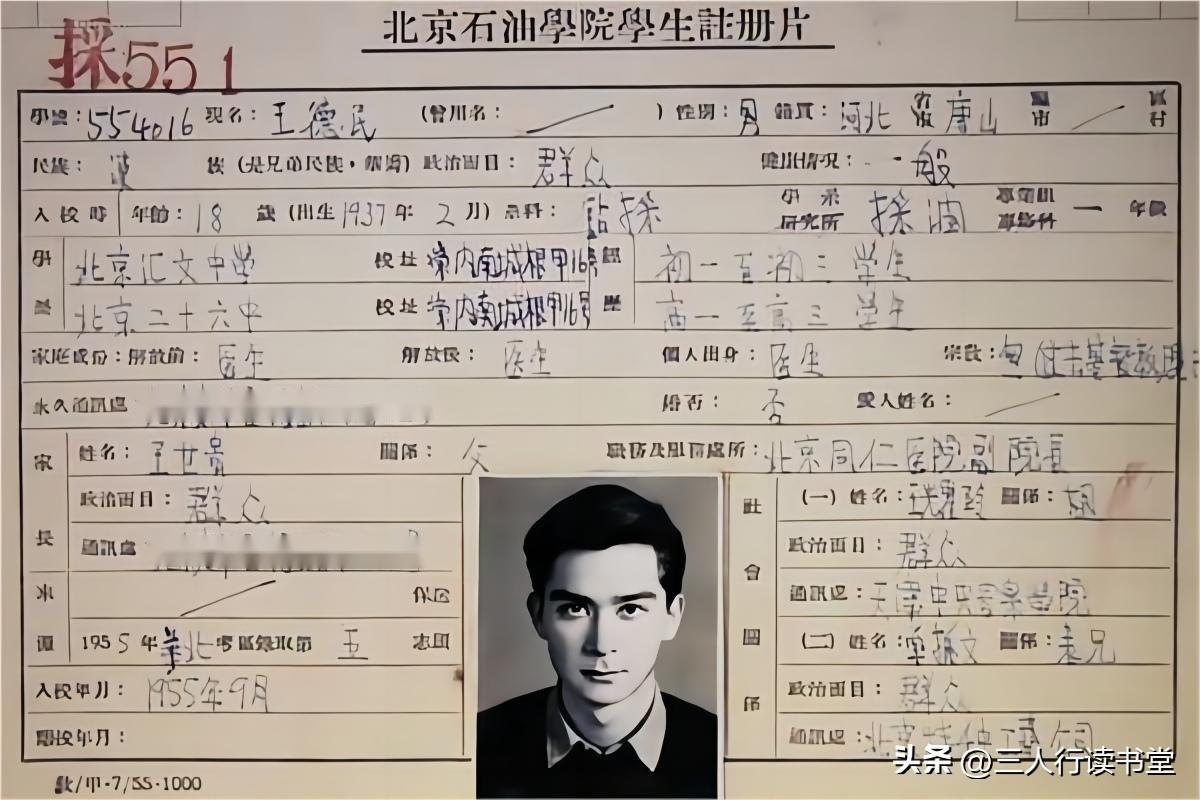 北京石油學院學生註册片
採551
學號：554016 姓名：王德民 （曾用名：／） 性别：男 籍貫：河北 省 唐山 市 ／ 村
民族： 族 政治面目：群众 健康情况：一般
入校時 年齡：18 歲（出生1937年2月）系科：鈷採 學系 研究所 採油 一 年级
學 北京汇文中学 校址 崇内南城根甲16号 初一至初三 学生
北京二十六中 校址 崇内南城根甲16号 高一至高三 学生
家庭成份：解放前：医生 解放后：医生 個人出身：医生 宗教：
永久通訊處 婚否：否 愛人姓名：／
家長 姓名：王世贵 關係：父 職務及服務處所：北京同仁医院副院長
政治面目：群众
通訊處
社會關係 （一）姓名： 關係：姐
政治面目：群众
通訊處：天津中央音乐学院
來源 ／
1955年華北考區錄取第 五 志願
（二）姓名： 關係：表兄
政治面目：群众
入校年月：1955年9月
離校年月：
通訊處：北京
/甲·7/55·1000
头条 @三人行读书堂